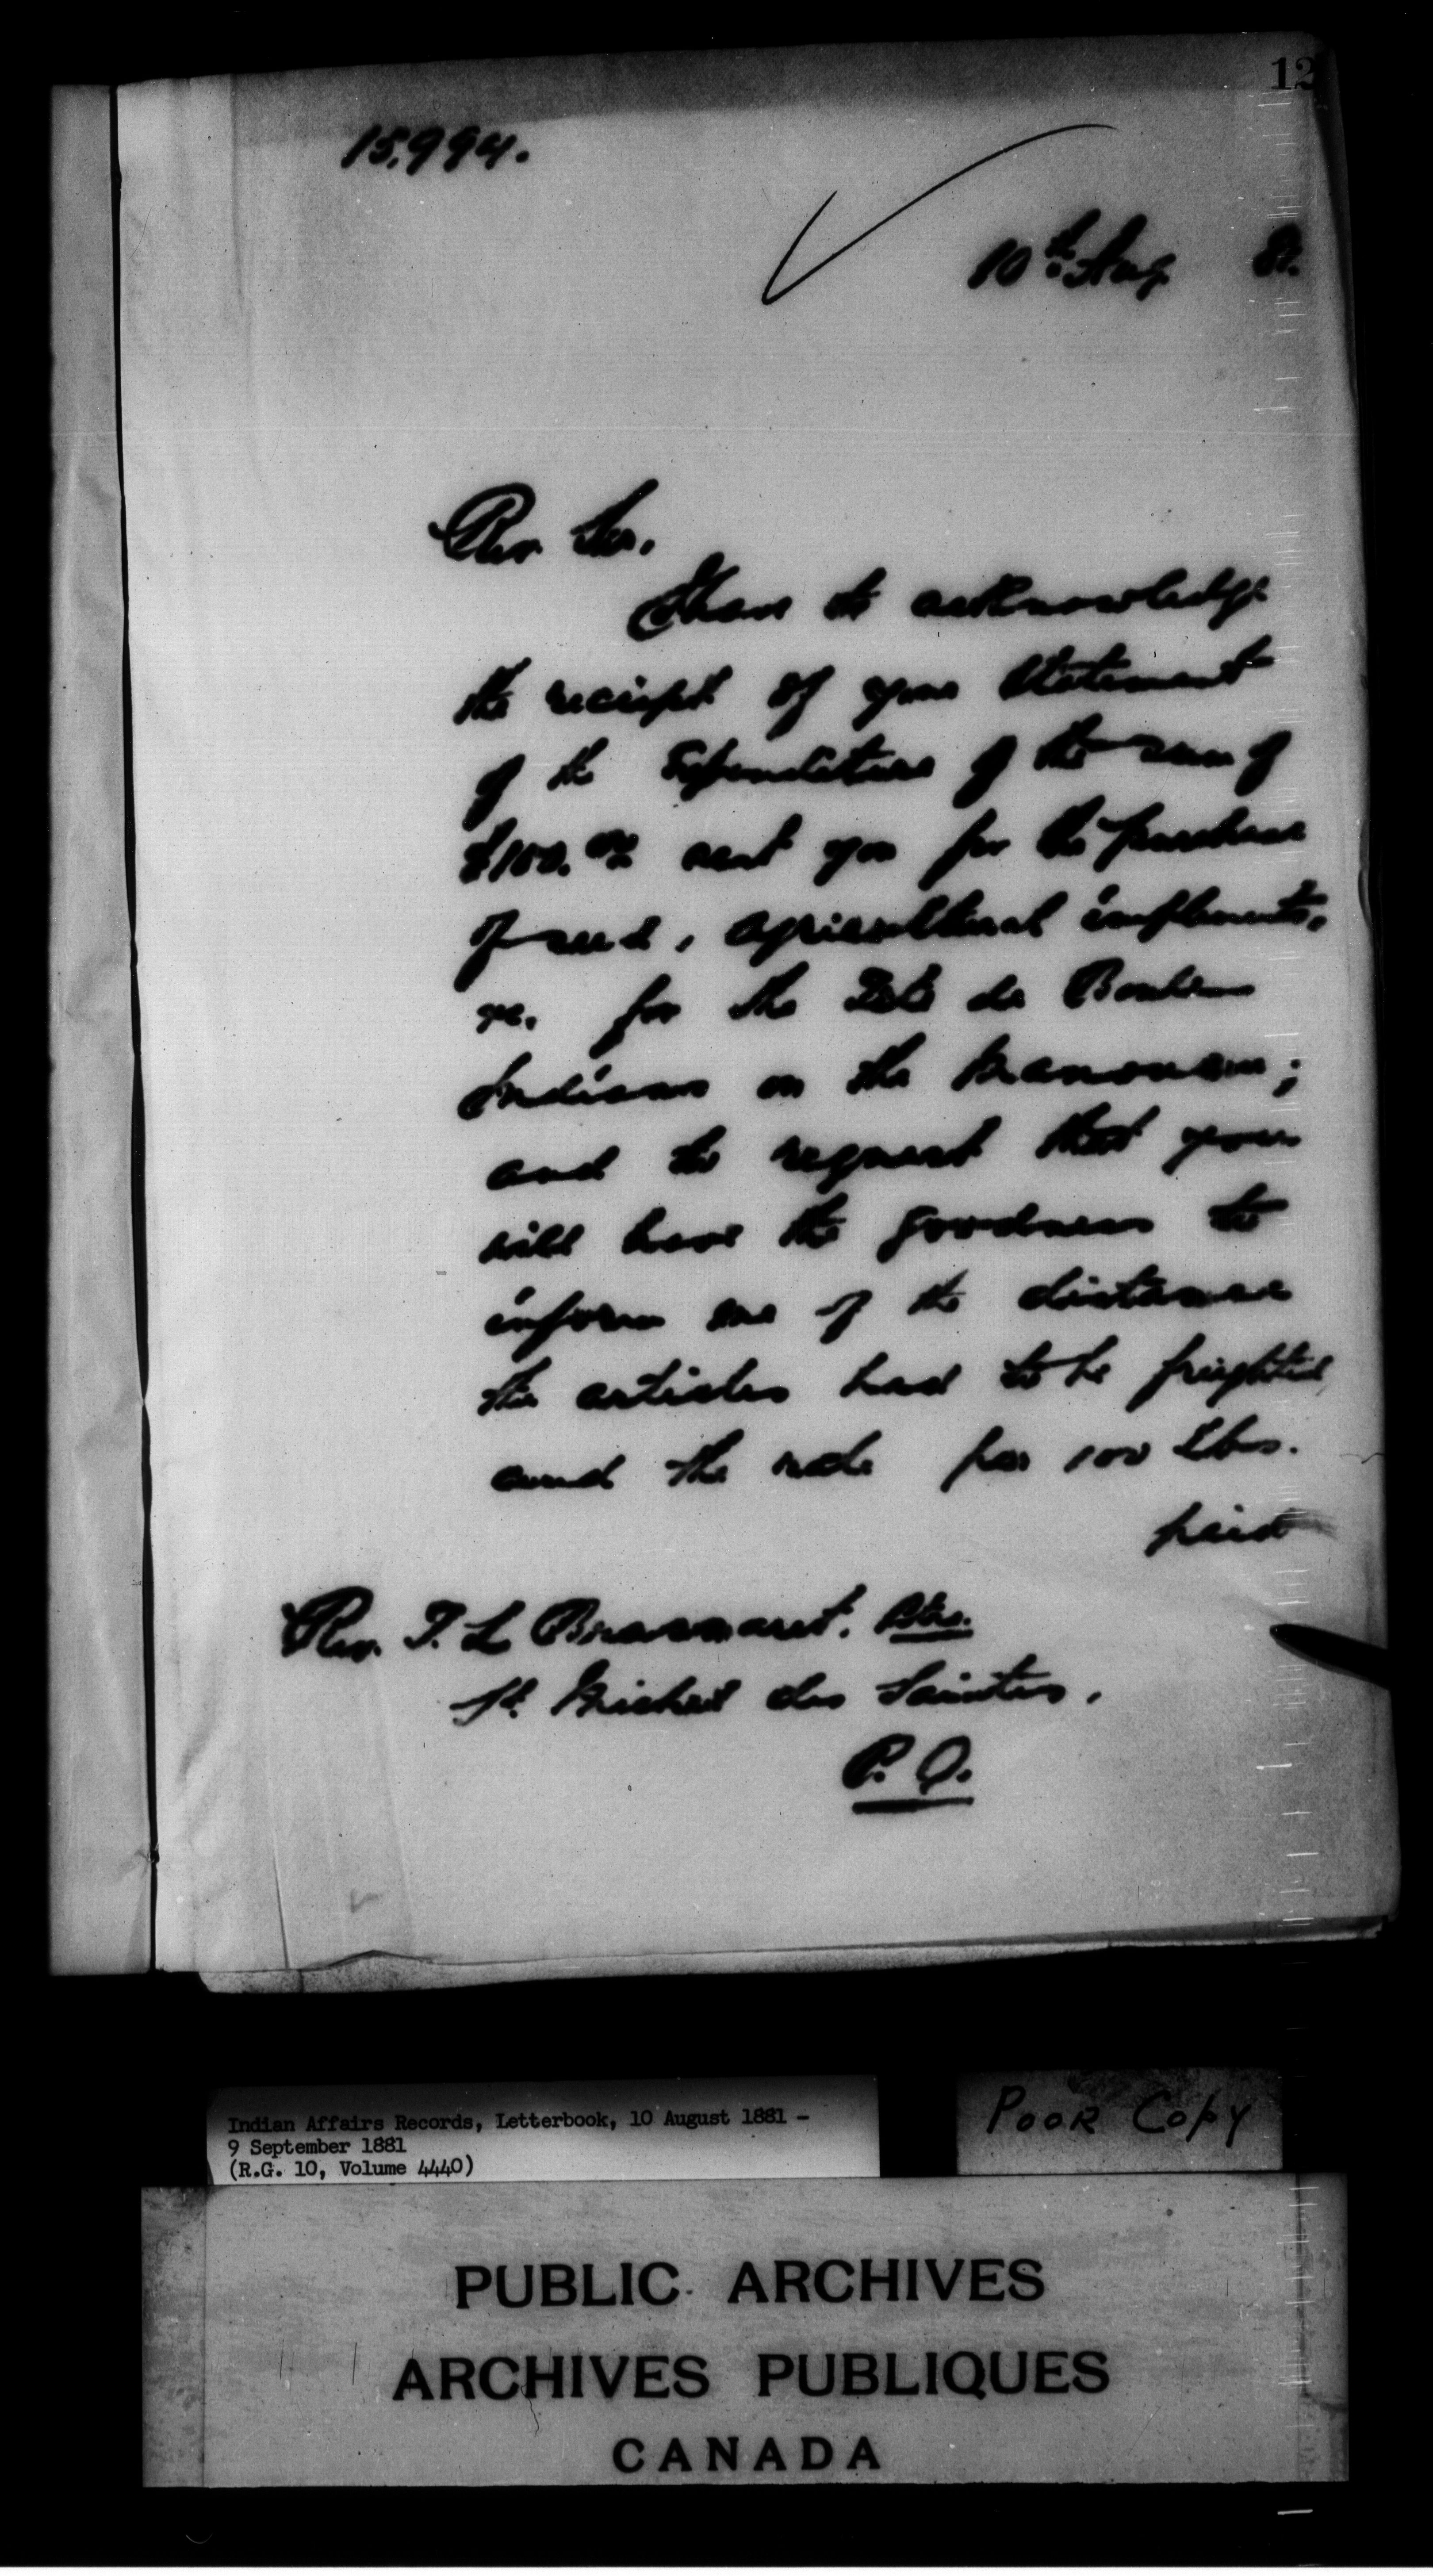 12
15,994.
10th Aug 81.
Rev Sir.
I have to acknowledge
the receipt of your Statement
of the Expenditure of the sum of
$100.00 sent you for the purchase
of seed, agricultural implements,
&c. for the Tete de Boule
Indians on the Manouan;
and to request that you
will have the goodness to
inform me of the distance
the articles had to be freighted
and the rate per 100 lbs.
paid
Rev. T. L. Brassard. Ptre.
St. Michel des Saintes,
P. Q.
Indian Affairs Records, Letterbook, 10 August 1881 -
9 September 1881
(R.G. 10, Volume 4440)
POOR COPY
PUBLIC ARCHIVES
ARCHIVES PUBLIQUES
CANADA